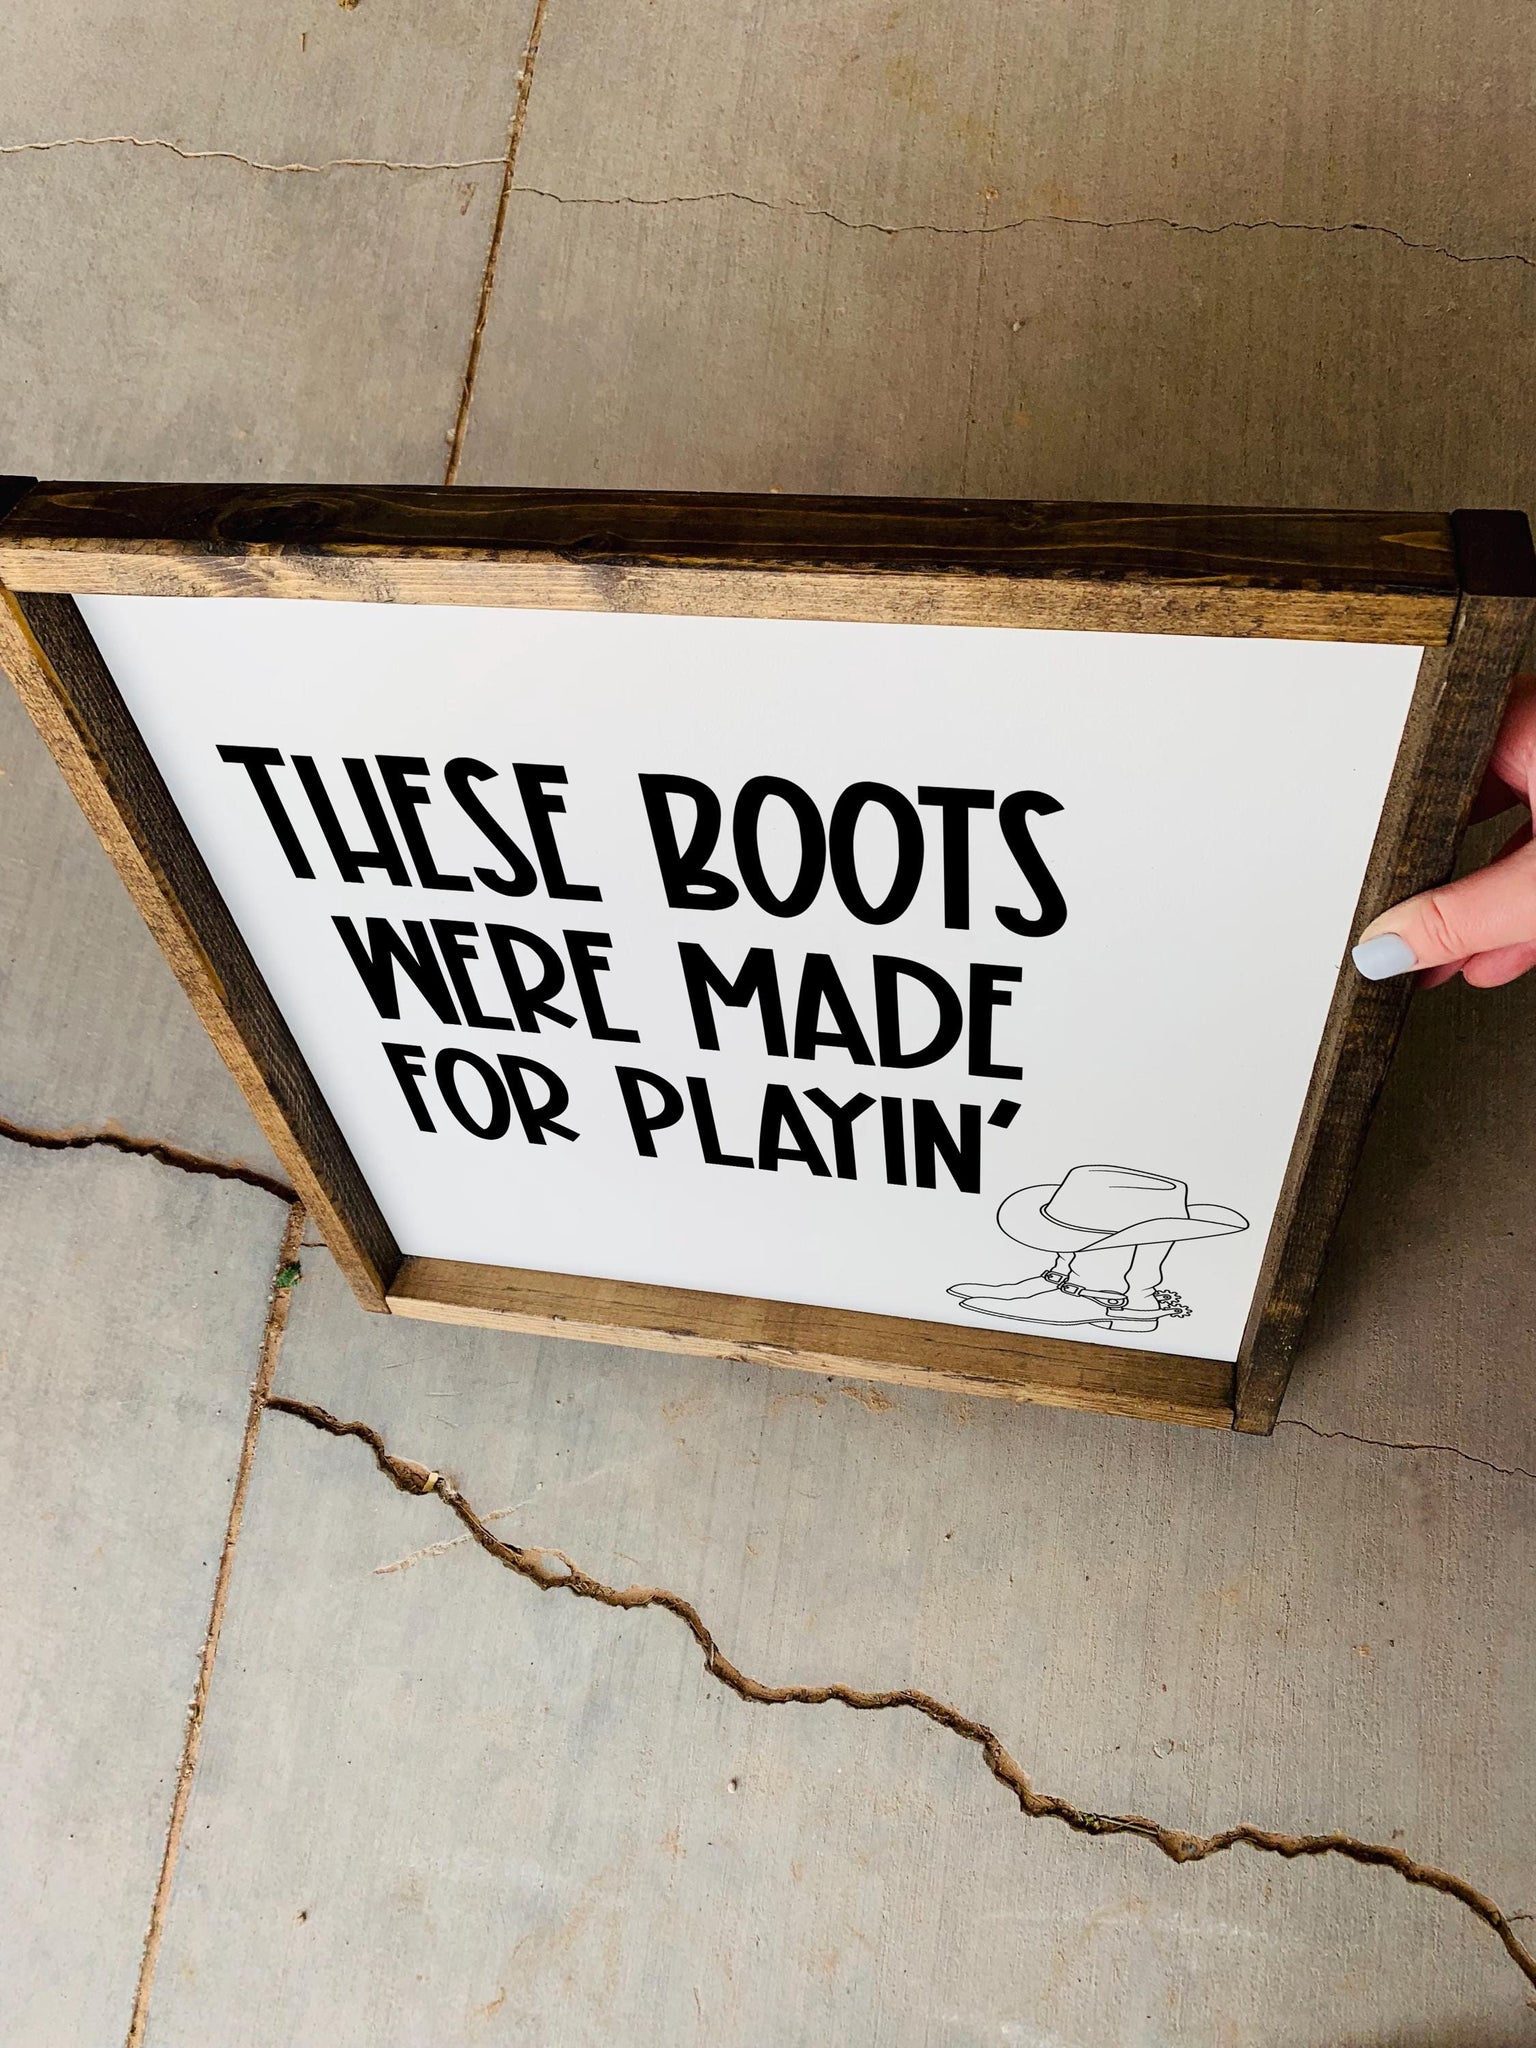 THESE BOOTS
WERE MADE
FOR PLAYIN'